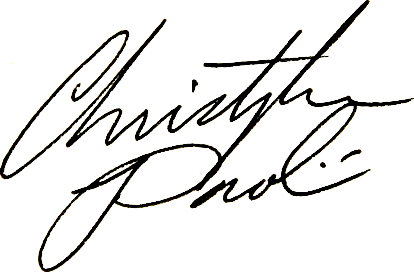 Christopher
Paoli